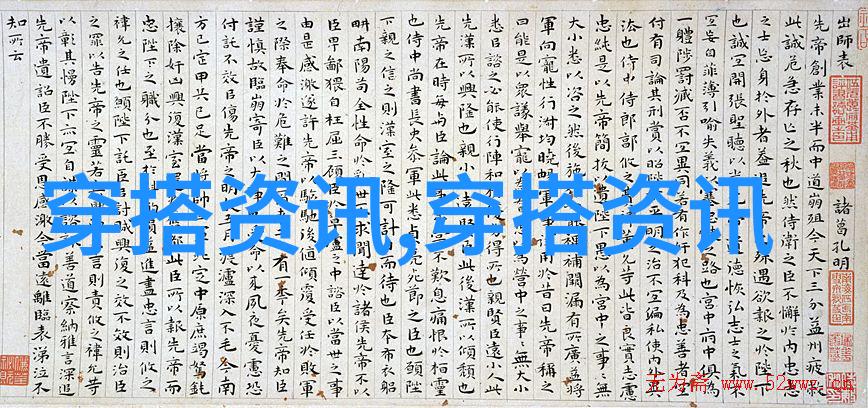 穿搭资讯,穿搭资讯
出師表
諸葛孔明
先帝創業未半而中道崩殂今天下三分益州疲敝
此誠危急存亡之秋也然侍衛之臣不懈於内忠志
之士忘身於外者蓋追先帝殊遇欲報之於陛下
也誠宜開張聖聽以光德恢弘志士之氣不
宜妄自菲薄引喻失義以塞路也宮中府中俱為
一體陟罰臧否不宜異同若有作奸犯科及為忠善者宜
付有司論其刑賞以昭陛下平明之治不宜偏私使内外異
法也侍中侍郎郭攸之費允等此皆良實志慮
忠純是以先帝簡拔以遺陛下愚以為宮中之事事無
大小悉以咨之然後施行裨補闕漏有所廣益將
軍向寵性行淑均曉暢軍事用於昔日先帝稱之
曰能是以衆議舉寵以為愚以為營中之事事無大小
悉臣諮之必能使行陣和得所也親賢臣遠小人此
先漢所以興隆也親小人遠賢臣此後漢所以傾頹也
先帝在時每與臣論此事歎息痛恨於桓靈
也侍中尚書長史參軍此悉貞亮死節之臣也願陛
下親之信之則漢室之隆可計而待也臣本布衣躬
耕南陽苟全性命於世求聞達於諸侯先帝不以
臣卑鄙猥自枉屈三顧臣於廬之中諮臣以當世之事
由是感激遂許先帝以驅馳後值傾覆受任於敗軍
之際奉命於危難之間有一年矣先帝知臣
謹慎故臨崩寄臣以大事受命以來夙夜憂慮恐
付託不效以傷先帝之明五月渡瀘深入不毛今南
方已定甲兵已足當獎帥定中原庶竭駑鈍
攘除奸凶興復漢室還都此臣所以報先帝而
忠陛下之職分也至於損益進盡忠言則攸之
禕允之任也願陛下託臣討賊興復之效不效則治臣
之罪以告先帝之靈若言則責攸之禕允等
以彰其慢陛下亦宜自謀以諮善道察納雅言深追
先帝遺詔臣不勝受恩感激今當遠離臨表涕泣不
知所云
无为斋 www.52wwz.cn